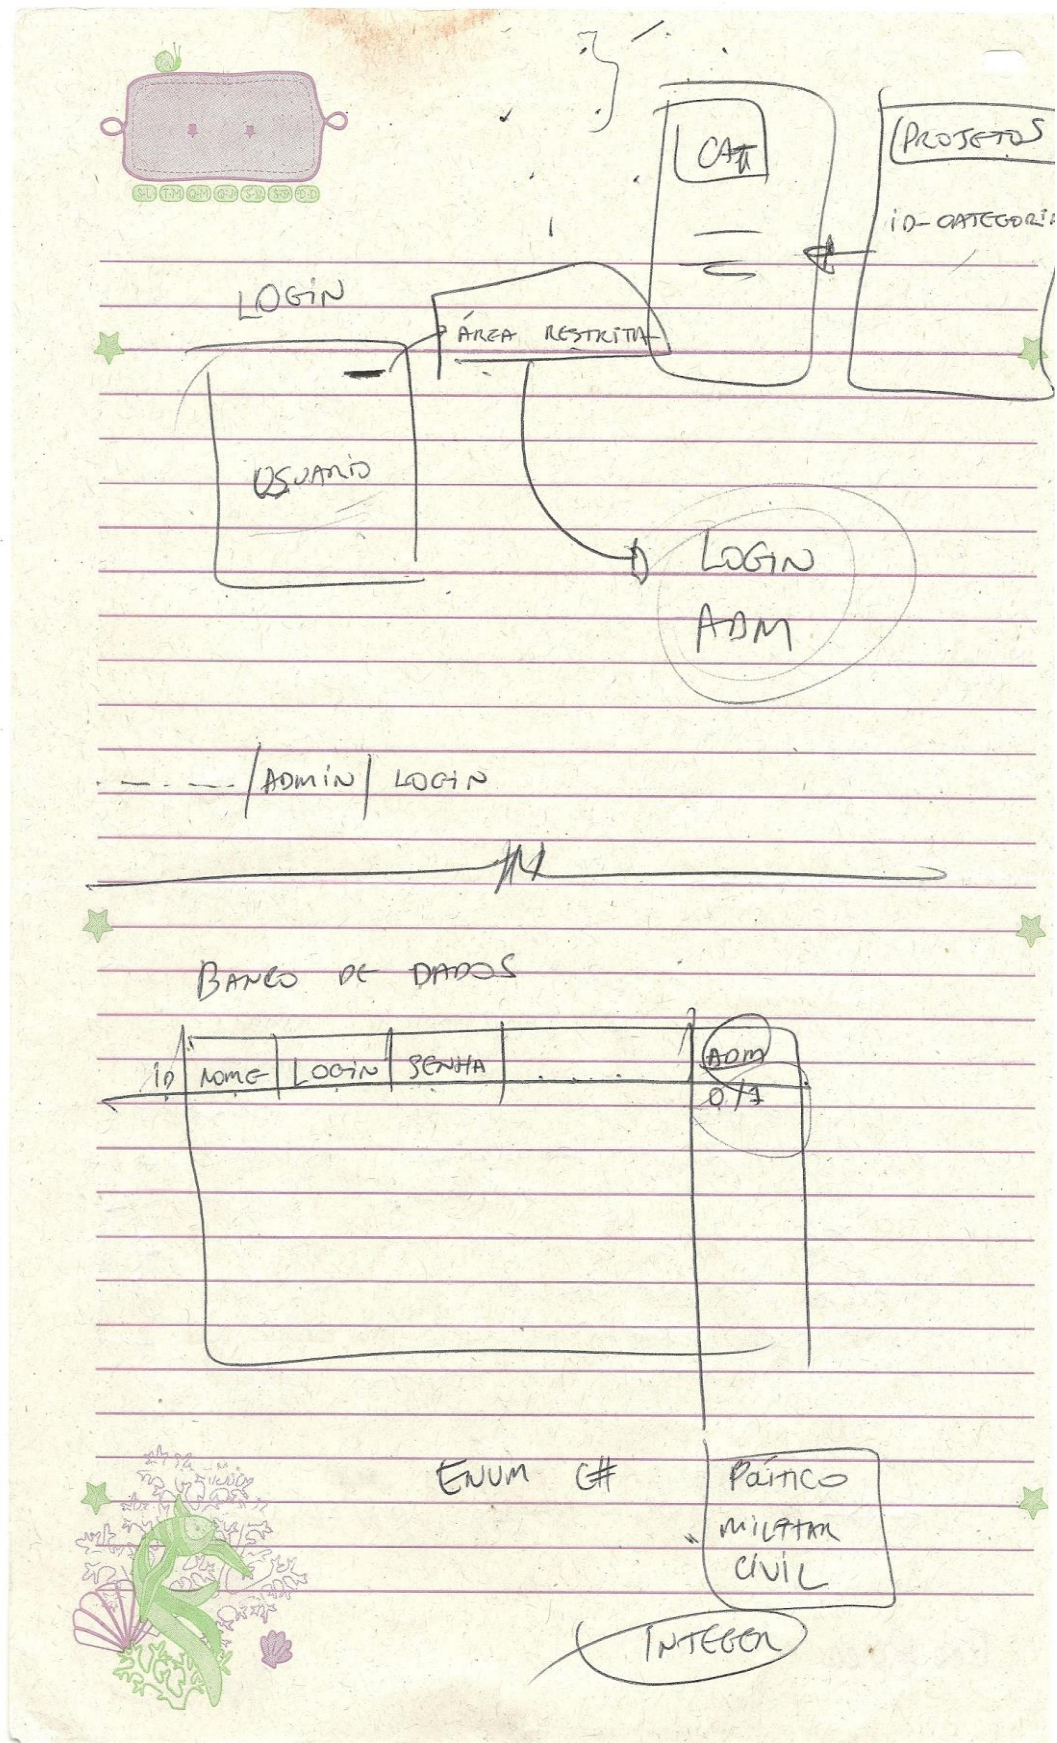 S-L T-M Q-M Q-J S-V S-S D-D
CAT
PROJETOS
ID-CATEGORIA
LOGIN
ÁREA RESTRITA
USUARIO
LOGIN
ADM
/ADMIN/ LOGIN
BANCO DE DADOS
ID NOME LOGIN SENHA ..... ADM
0/1
ENUM C#
POÍTICO
MILITAR
CIVIL
INTEGER